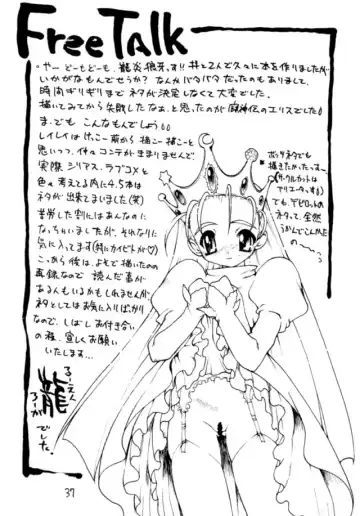 Free Talk
・やー どーもどーも、龍炎狼牙っす!! 井上さんと久々に本を作りましたが
いかがなもんでせうか? なんかバタバタだったのもありまして、
時間ぎりぎりまで ネタが決定しなくて大変でした。
描いてみてから失敗したなぁ。と思ったのが 闘神伝のエリスでした
ま、でも こんなもんでしょう
レイレイはけっこー前から 描こー描こーと
思いつつ、中々 コンテが生まりませんで
実際 シリアス、ラブコメと
色々考えてる内に 4、5本は
ネタが出来てまいました(笑)
苦労した割にはあんなのに
なっちゃいましたが、それなりに
気に入ってます(特にカイビトが♡)
・ここから後は、よそで描いたのの
再録なので 読んだ事が
あるんもいるかもしれませんが
ネタとしてはお気に入りばっかり
なので、しばしお付き合い
の程、宜しくお願い
いたします...
ボツネタでも
描きたかったっすー
(サークルカットは
アリエータっす)
でも、デビロットの
ネタって、全然
うかんでこんねん
の〜〜〜〜
るーえん
龍
ろーが
でした。
37